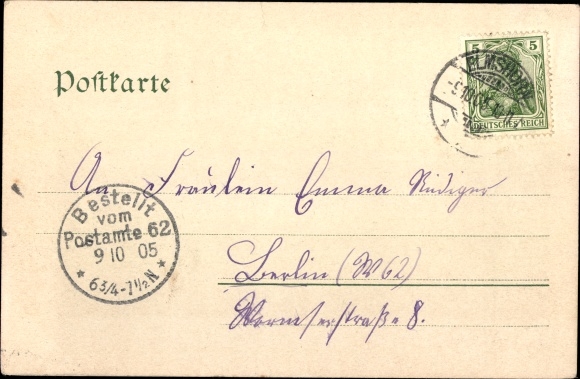 5 5
DEUTSCHES REICH
ELMSHORN
Postkarte
An Fräulein Emma Rüdiger
Bestellt
vom
Postamte 62
9 10 05
* 6 3/4-7 1/2 N *
Berlin (W62)
Wormserstraße 8.